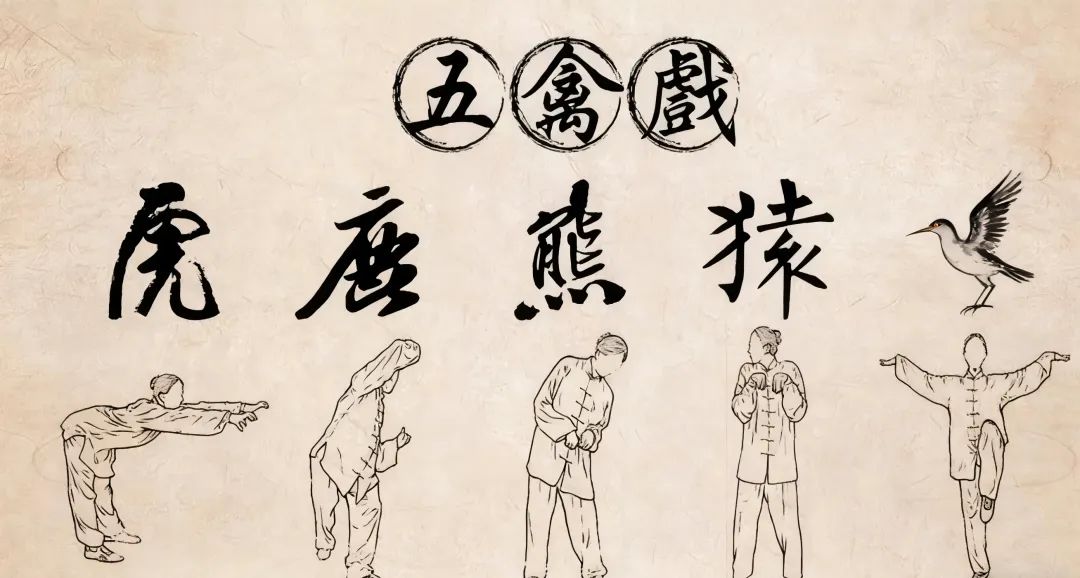 五禽戲
虎鹿熊猿